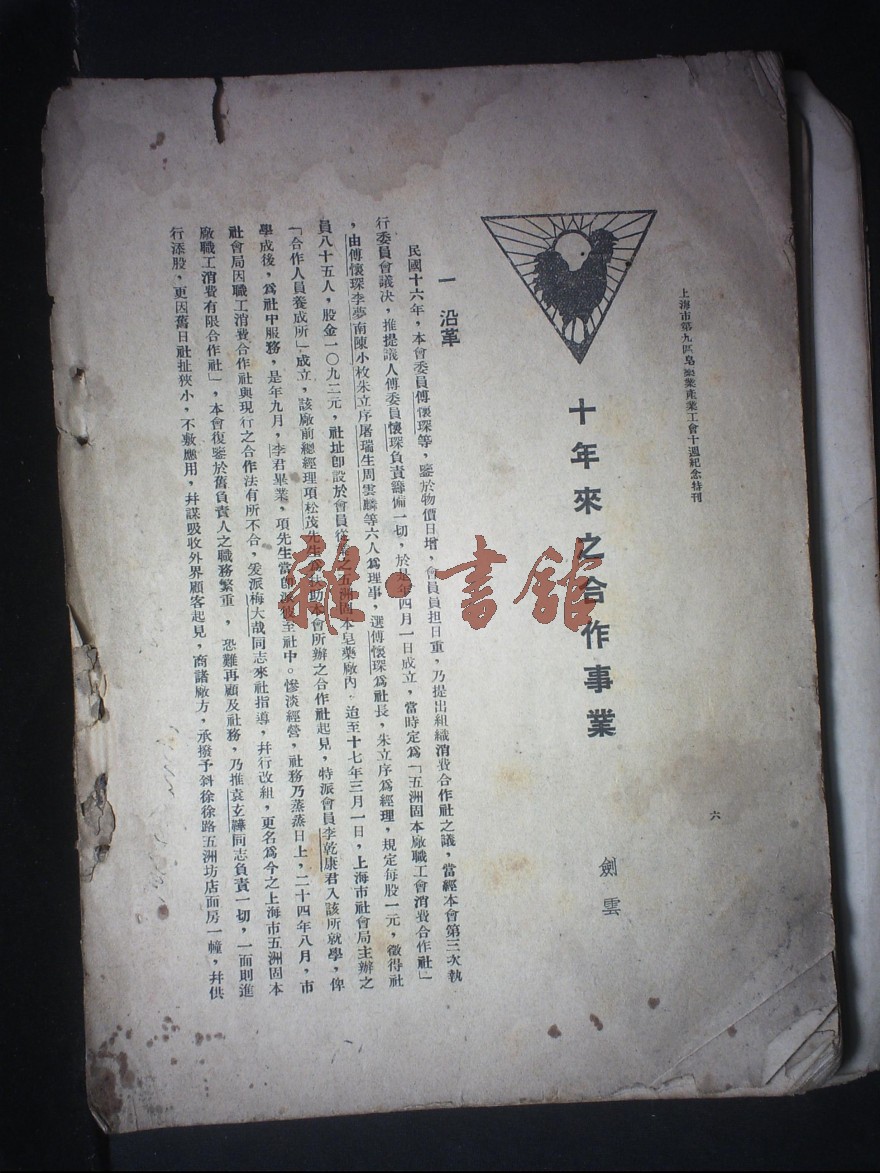 上海市第九區皂藥業產業工會十週紀念特刊
六
十年來之合作事業
劍雲
一 沿革
民國十六年，本會委員傅懷琛等，鑒於物價日增，會員負担日重，乃提出組織消費合作社之議，當經本會第三次執
行委員會議决，推提議人傅委員懷琛負責籌備一切，於是年四月一日成立，當時定爲「五洲固本廠職工會消費合作社」
，由傅懷琛李夢南陳小枚朱立序屠瑞生周雲麟等六人爲理事，選傅懷琛爲社長，朱立序爲經理，規定每股一元，徵得社
員八十五人，股金一〇九二元，社址卽設於會員從業之五洲固本皂藥廠內．迨至十七年三月一日，上海市社會局主辦之
「合作人員養成所」成立，該廠前總經理項松茂先生爲扶助本會所辦之合作社起見，特派會員李乾康君入該所就學，俾
學成後，爲社中服務，是年九月，李君畢業，項先生當卽派彼至社中。慘淡經營，社務乃蒸蒸日上，二十四年八月，市
社會局因職工消費合作社與現行之合作法有所不合，爰派梅大哉同志來社指導，幷行改組，更名爲今之上海市五洲固本
廠職工消費有限合作社」，本會復鑒於舊負責人之職務繁重，恐難再顧及社務，乃推袁玄鞾同志負責一切，一面則進
行添股，更因舊日社址狹小，不敷應用，幷謀吸收外界顧客起見，商諸廠方，承撥予斜徐路五洲坊店面房一幢，幷供
雜·書館